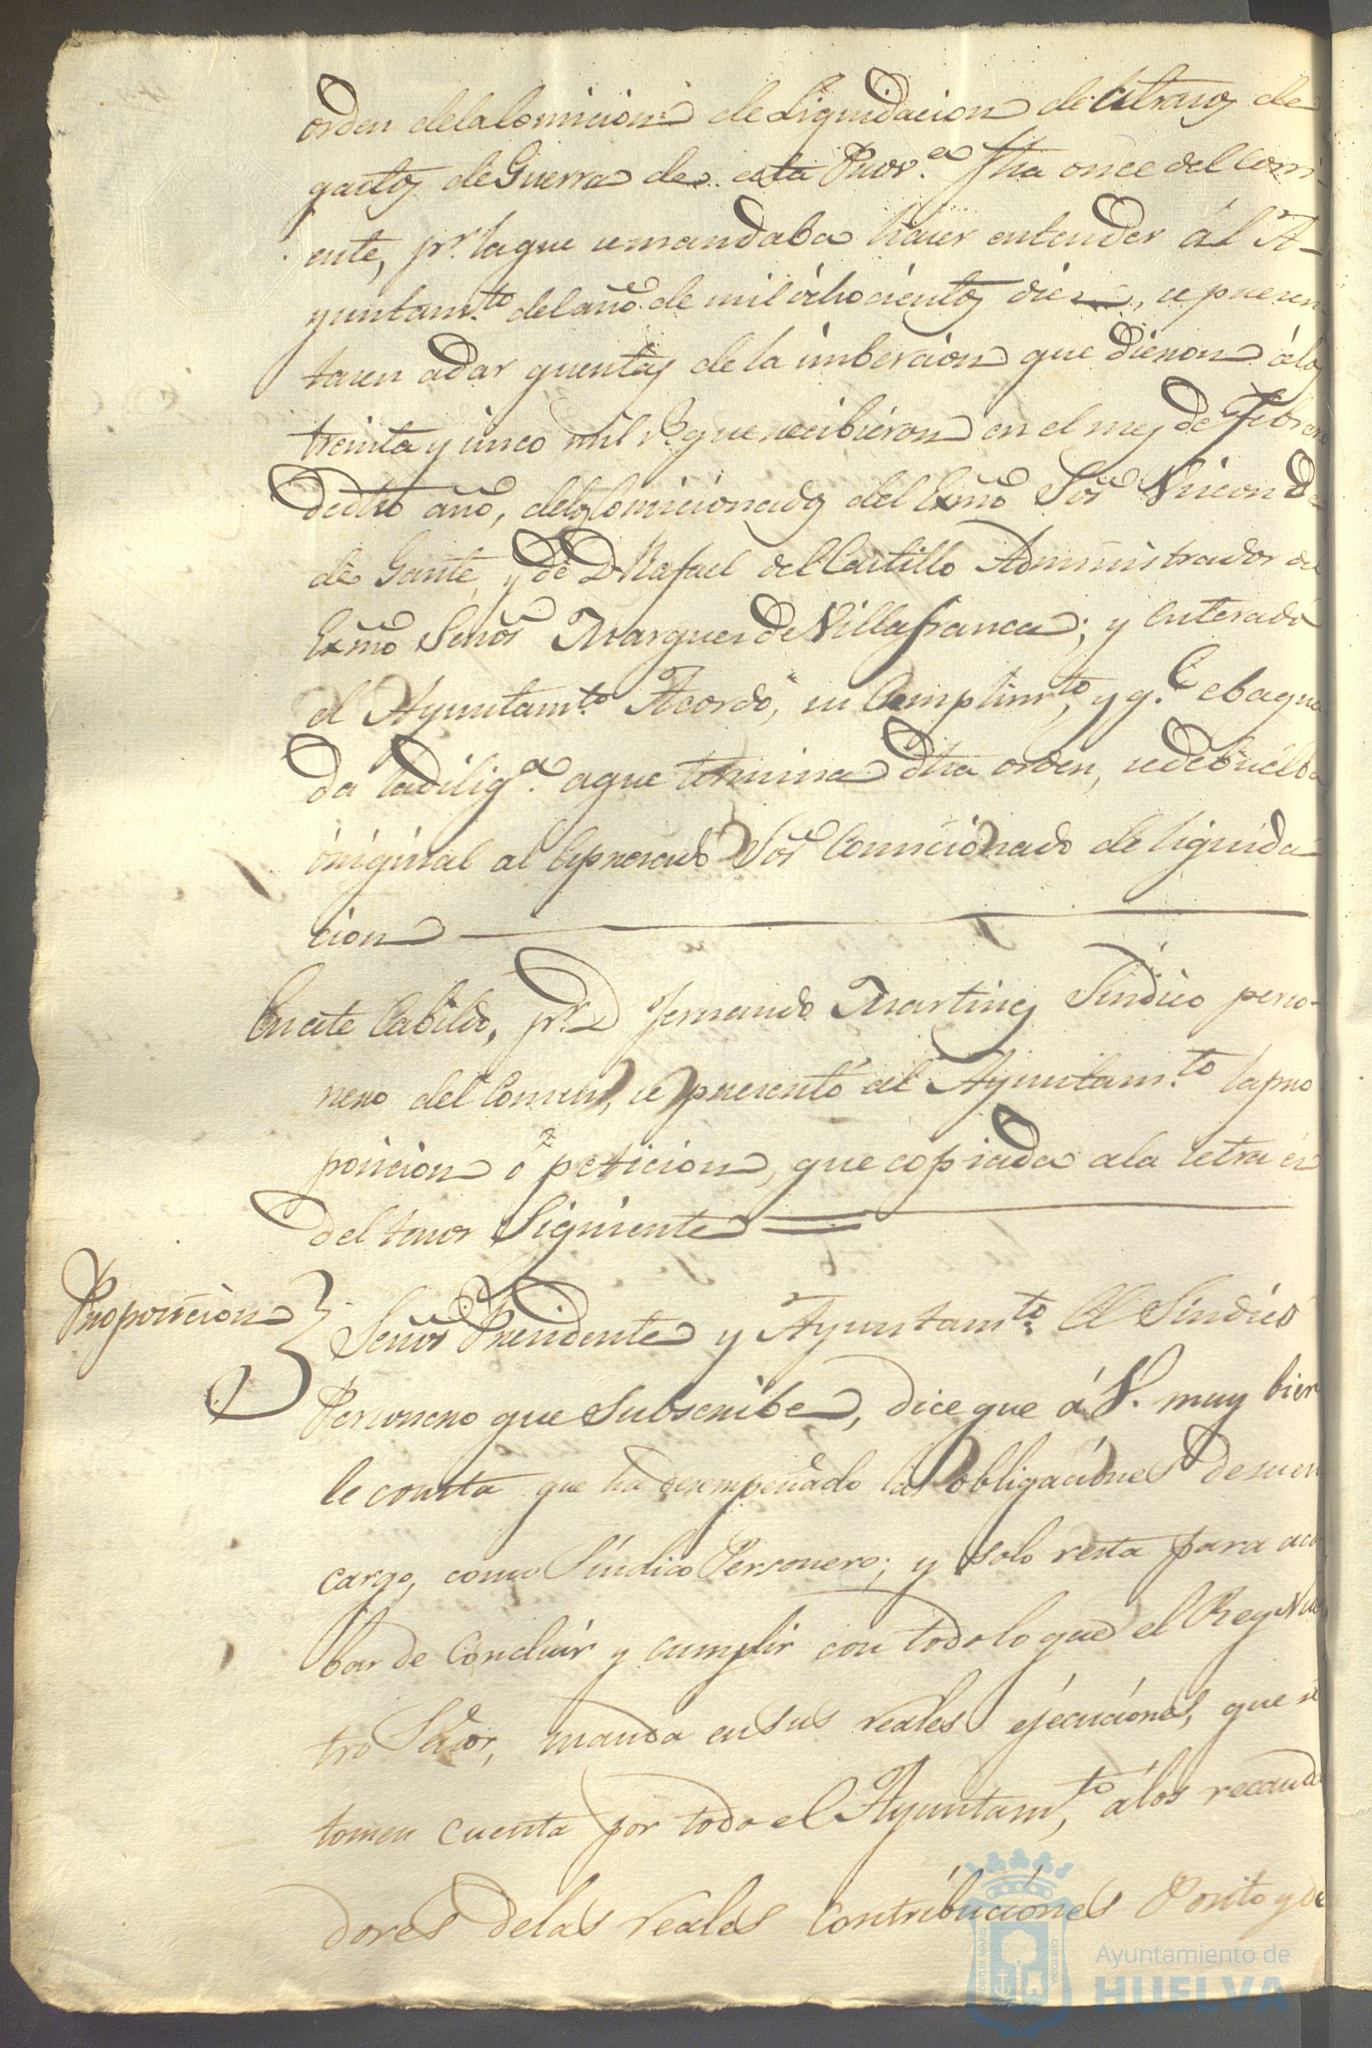 orden dela Comicion de Liquidacion de Atrasos de
gastos de Guerra de esta Prov.ª fha once del corri-
ente, pr. la que se mandaba hacer entender ál A-
yuntam.to del año de mil ôchocientos diez, se presen
tasen adar quentas de la imbercion que dieron álos
treinta y cinco mil r.s que recibieron en el mes de Febrero
de dho año, delos Comicionados del Exmo Sor Vizconde
de Gante, y de D Rafael del Castillo Administrador del
Exmo Señor Marques de Villafranca; y enterado
el Ayuntam.to Acordó, su Complim.to, y q.e ebaqua
da la dilig.ª aque termina dha orden, se debuelba
original al Expresado Sor Comicionado de liquida
cion
En este Cabildo, pr. D Fernando Martinez Sindico perso-
nero del Comun, se presentó al Ayuntam.to la pro
posicion ô peticion, que copiada ala letra es
del tenor Siguiente
Proposicion
Señor Presidente y Ayuntam.to El Sindico
Personero que subscribe, dice que á V. muy bien
le consta que ha desempeñado las obligaciones de su en
cargo, como Síndico Personero; y solo resta para aca
bar de Concluir y cumplir con todo lo que el Rey Nues
tro Señor, manda en sus reales ejecuciones, que se
tomen cuenta por todo el Ayuntam.to, álos recauda
dores delas reales Contribuciones Posito y de
Ayuntamiento de
HUELVA